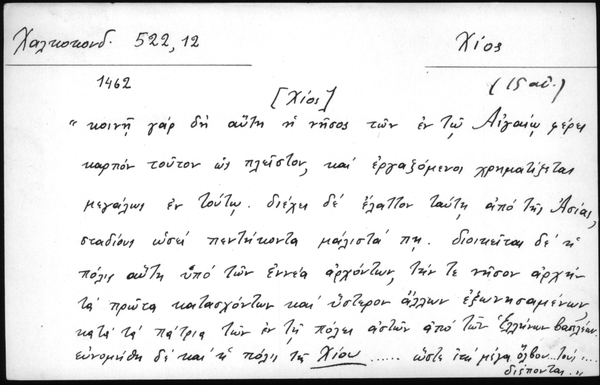 Χαλκοκονδ. 522,12
Χίος
1462
(15 αἰ.)
[Χίος]
"κοινῇ γάρ δή αὕτη ἡ νῆσος τῶν ἐν τῷ Αἰγαίῳ φέρει
καρπόν τοῦτον ὡς πλεῖστον, καί ἐργαζόμενοι χρηματίζεται
μεγάλως ἐν τούτῳ. διέχει δέ ἔλαττον ταύτῃ ἀπό τῆς Ἀσίας,
σταδίους ὡσεί πεντήκοντα μάλιστά πῃ. διοικεῖται δέ ἡ
πόλις αὕτη ὑπό τῶν ἐννέα ἀρχόντων, τήν τε νῆσον ἀρχήν
τά πρῶτα κατασχόντων καί ὕστερον ἄλλων ἐξωνησαμένων
κατά τά πάτρια τῶν ἐν τῇ πόλει ἀστῶν ἀπό τῶν Ἑλλήνων βασιλέων.
εὐνομήθη δέ καί ἡ πόλις τῆς Χίου ...... ὥστε ἐπί μέγα ὄλβου ... τούς ....
διέποντας."